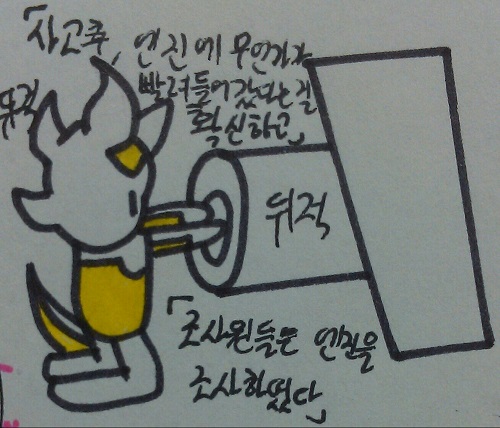 「사고후, 엔진에 무언가가
빨려들어갔다는걸
확신하고」
뒤적
뒤적
「조사원들은 엔진을
조사하였다」